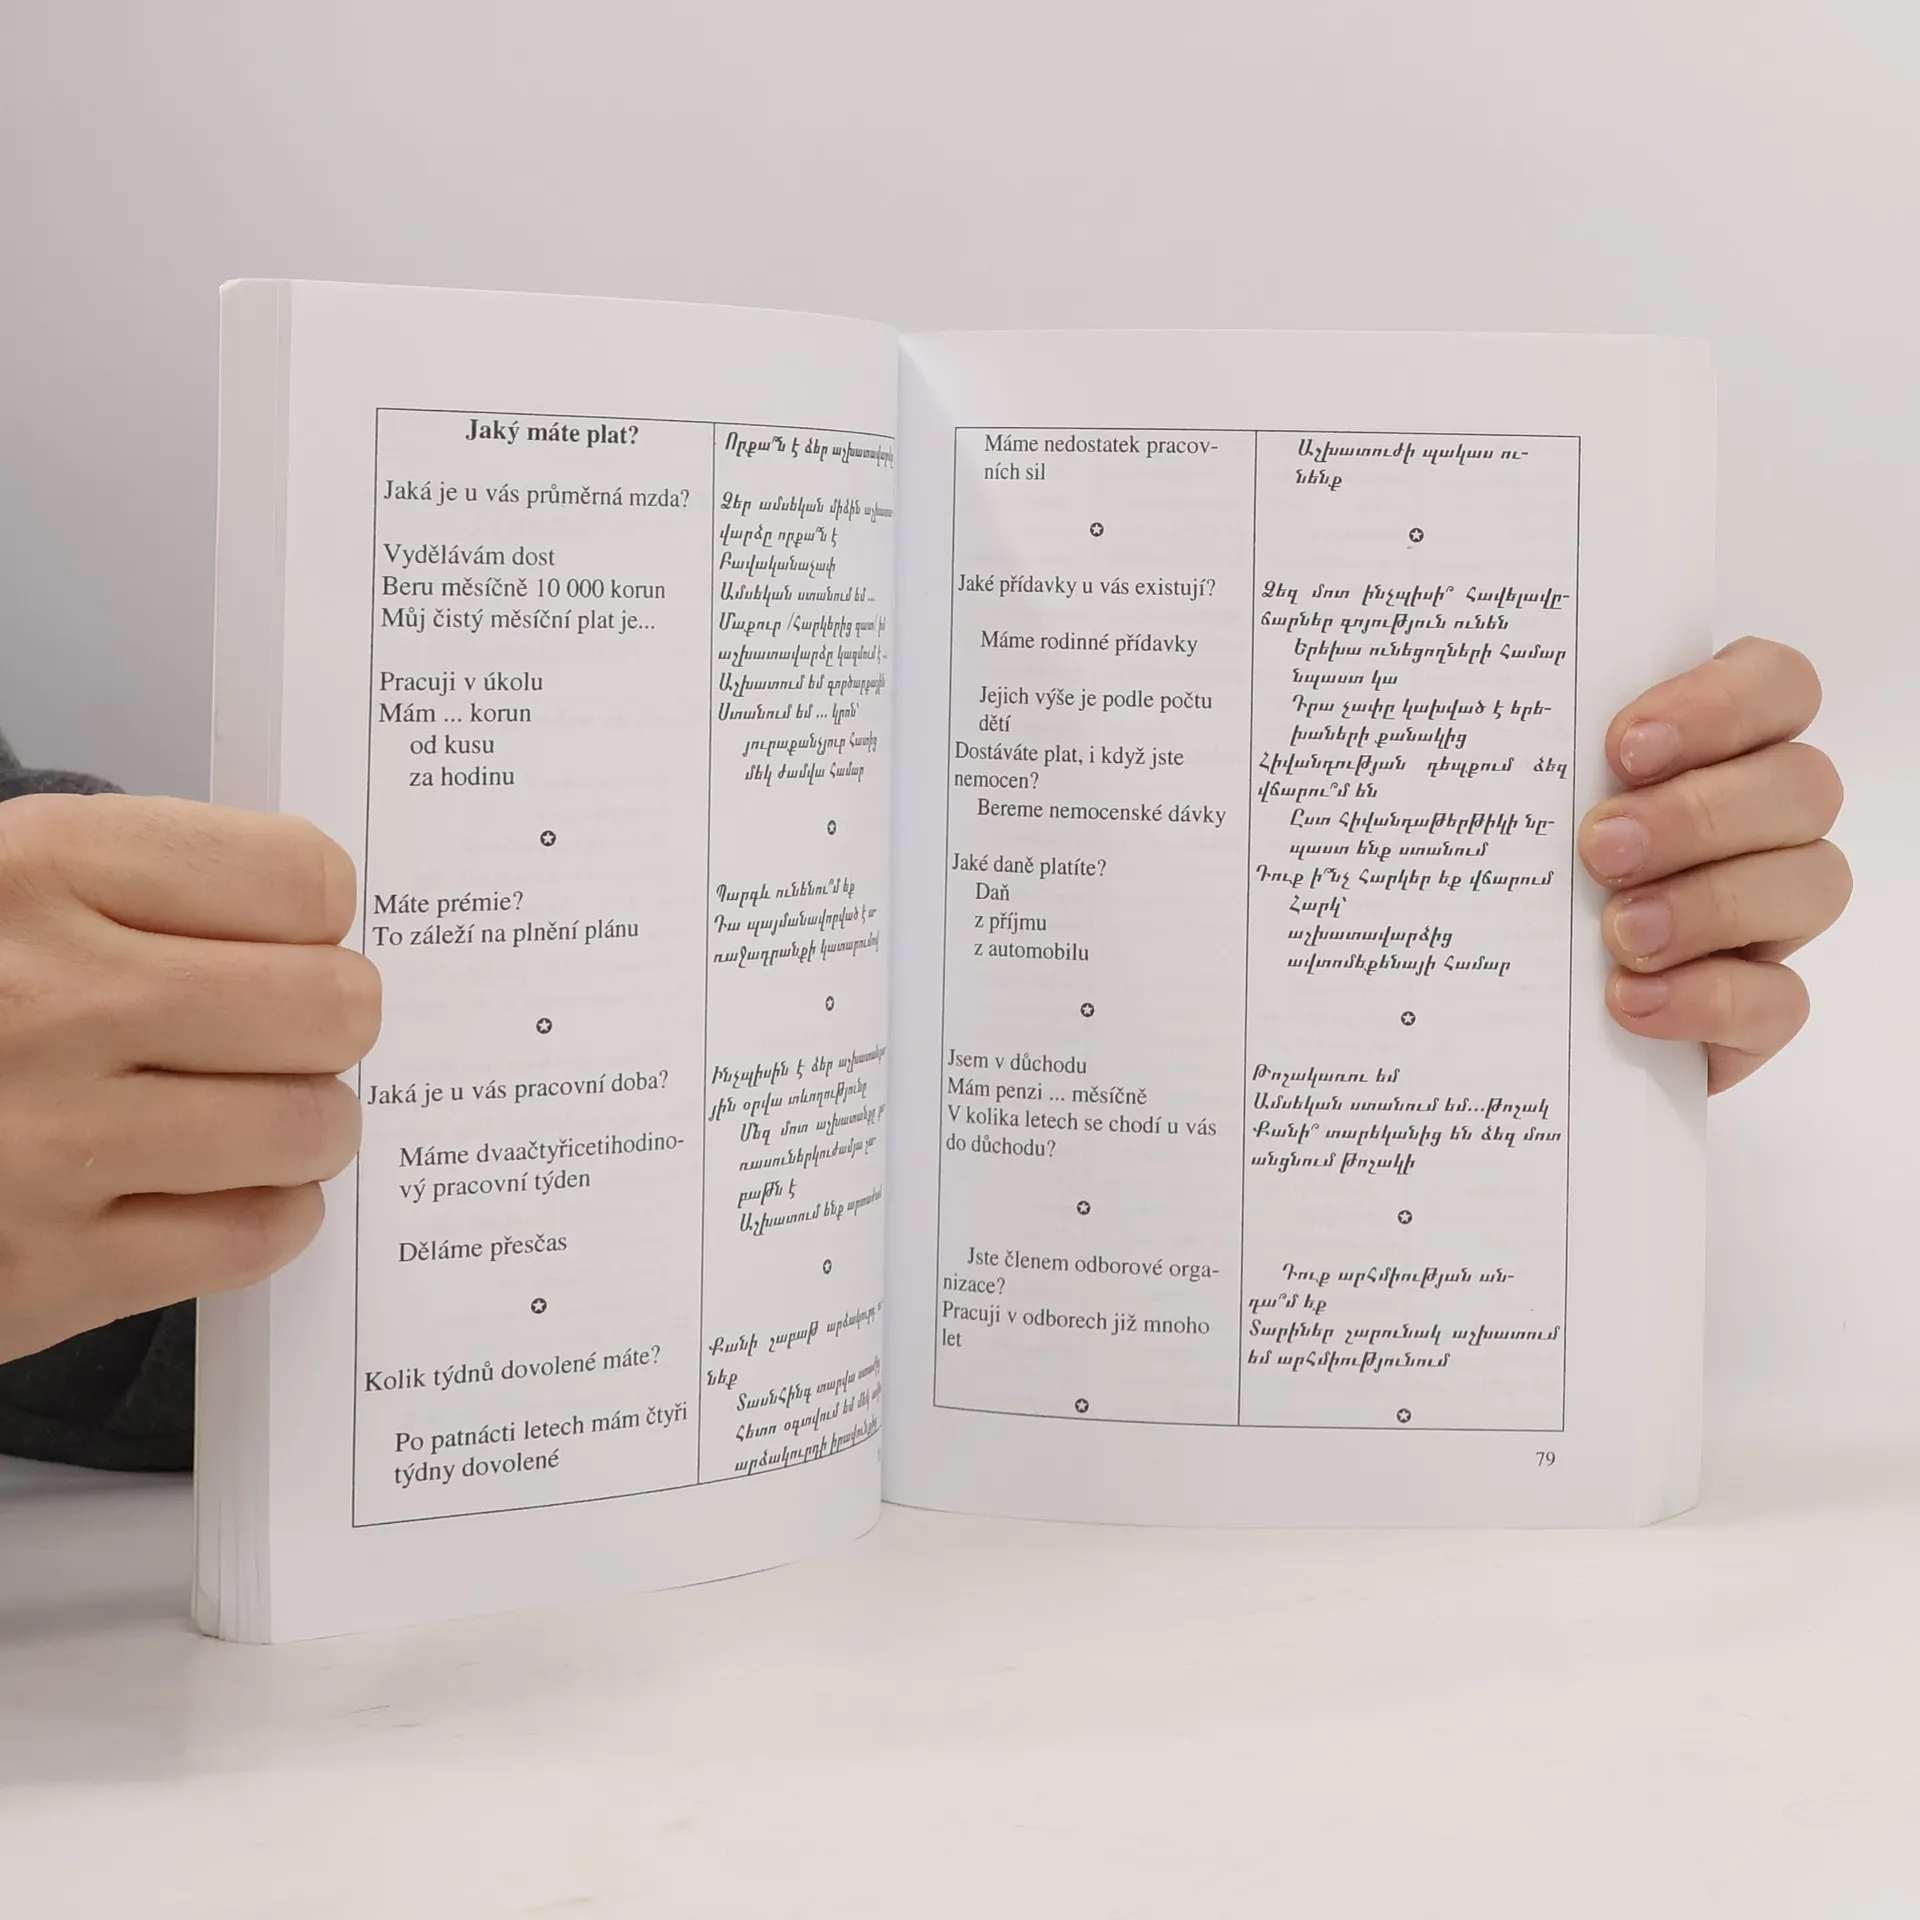 Jaký máte plat?
Jaká je u vás průměrná mzda?
Vydělávám dost
Beru měsíčně 10 000 korun
Můj čistý měsíční plat je...
Pracuji v úkolu
Mám ... korun
od kusu
za hodinu
Máte prémie?
To záleží na plnění plánu
Jaká je u vás pracovní doba?
Máme dvaačtyřicetihodino-
vý pracovní týden
Děláme přesčas
Kolik týdnů dovolené máte?
Po patnácti letech mám čtyři
týdny dovolené
Որքա՞ն է ձեր
Ձեր ամսեկան միջին
վարձը որքա՞ն է
Բավականաչափ
Ամսեկան ստանում եմ ...
Մաքուր /հարկերից զատ/ իմ
աշխատավարձը կազմում է ...
Աշխատում եմ գործարքային
Ստանում եմ ... կրոն՝
յուրաքանչյուր հատից
մեկ ժամվա համար
Պարգև ունենու՞մ եք
Դա պայմանավորված է ա-
ռաջադրանքի կատարումով
Ինչպիսին է ձեր
յին օրվա տևողությունը
Մեզ մոտ աշխատանքը
ռասուներկուժամյա շա-
բաթն է
Աշխատում ենք
Քանի շաբաթ
նեք
Տասնհինգ տարվա
հետո օգտվում եմ մեկ
արձակուրդի իրավունքից
Máme nedostatek pracov-
ních sil
Jaké přídavky u vás existují?
Máme rodinné přídavky
Jejich výše je podle počtu
dětí
Dostáváte plat, i když jste
nemocen?
Bereme nemocenské dávky
Jaké daně platíte?
Daň
z příjmu
z automobilu
Jsem v důchodu
Mám penzi ... měsíčně
V kolika letech se chodí u vás
do důchodu?
Jste členem odborové orga-
nizace?
Pracuji v odborech již mnoho
let
Աշխատուժի պակաս ու-
նենք
Ձեզ մոտ ինչպիսի՞ հավելավը-
ճարներ գոյություն ունեն
Երեխա ունեցողների համար
նպաստ կա
Դրա չափը կախված է երե-
խաների քանակից
Հիվանդության դեպքում ձեզ
վճարու՞մ են
Ըստ հիվանդաթերթիկի նը-
պաստ ենք ստանում
Դուք ի՞նչ հարկեր եք վճարում
Հարկ՝
աշխատավարձից
ավտոմեքենայի համար
Թոշակառու եմ
Ամսեկան ստանում եմ...թոշակ
Քանի՞ տարեկանից են ձեզ մոտ
անցնում թոշակի
Դուք արհմիության ան-
դա՞մ եք
Տարիներ շարունակ աշխատում
եմ արհմիությունում
79